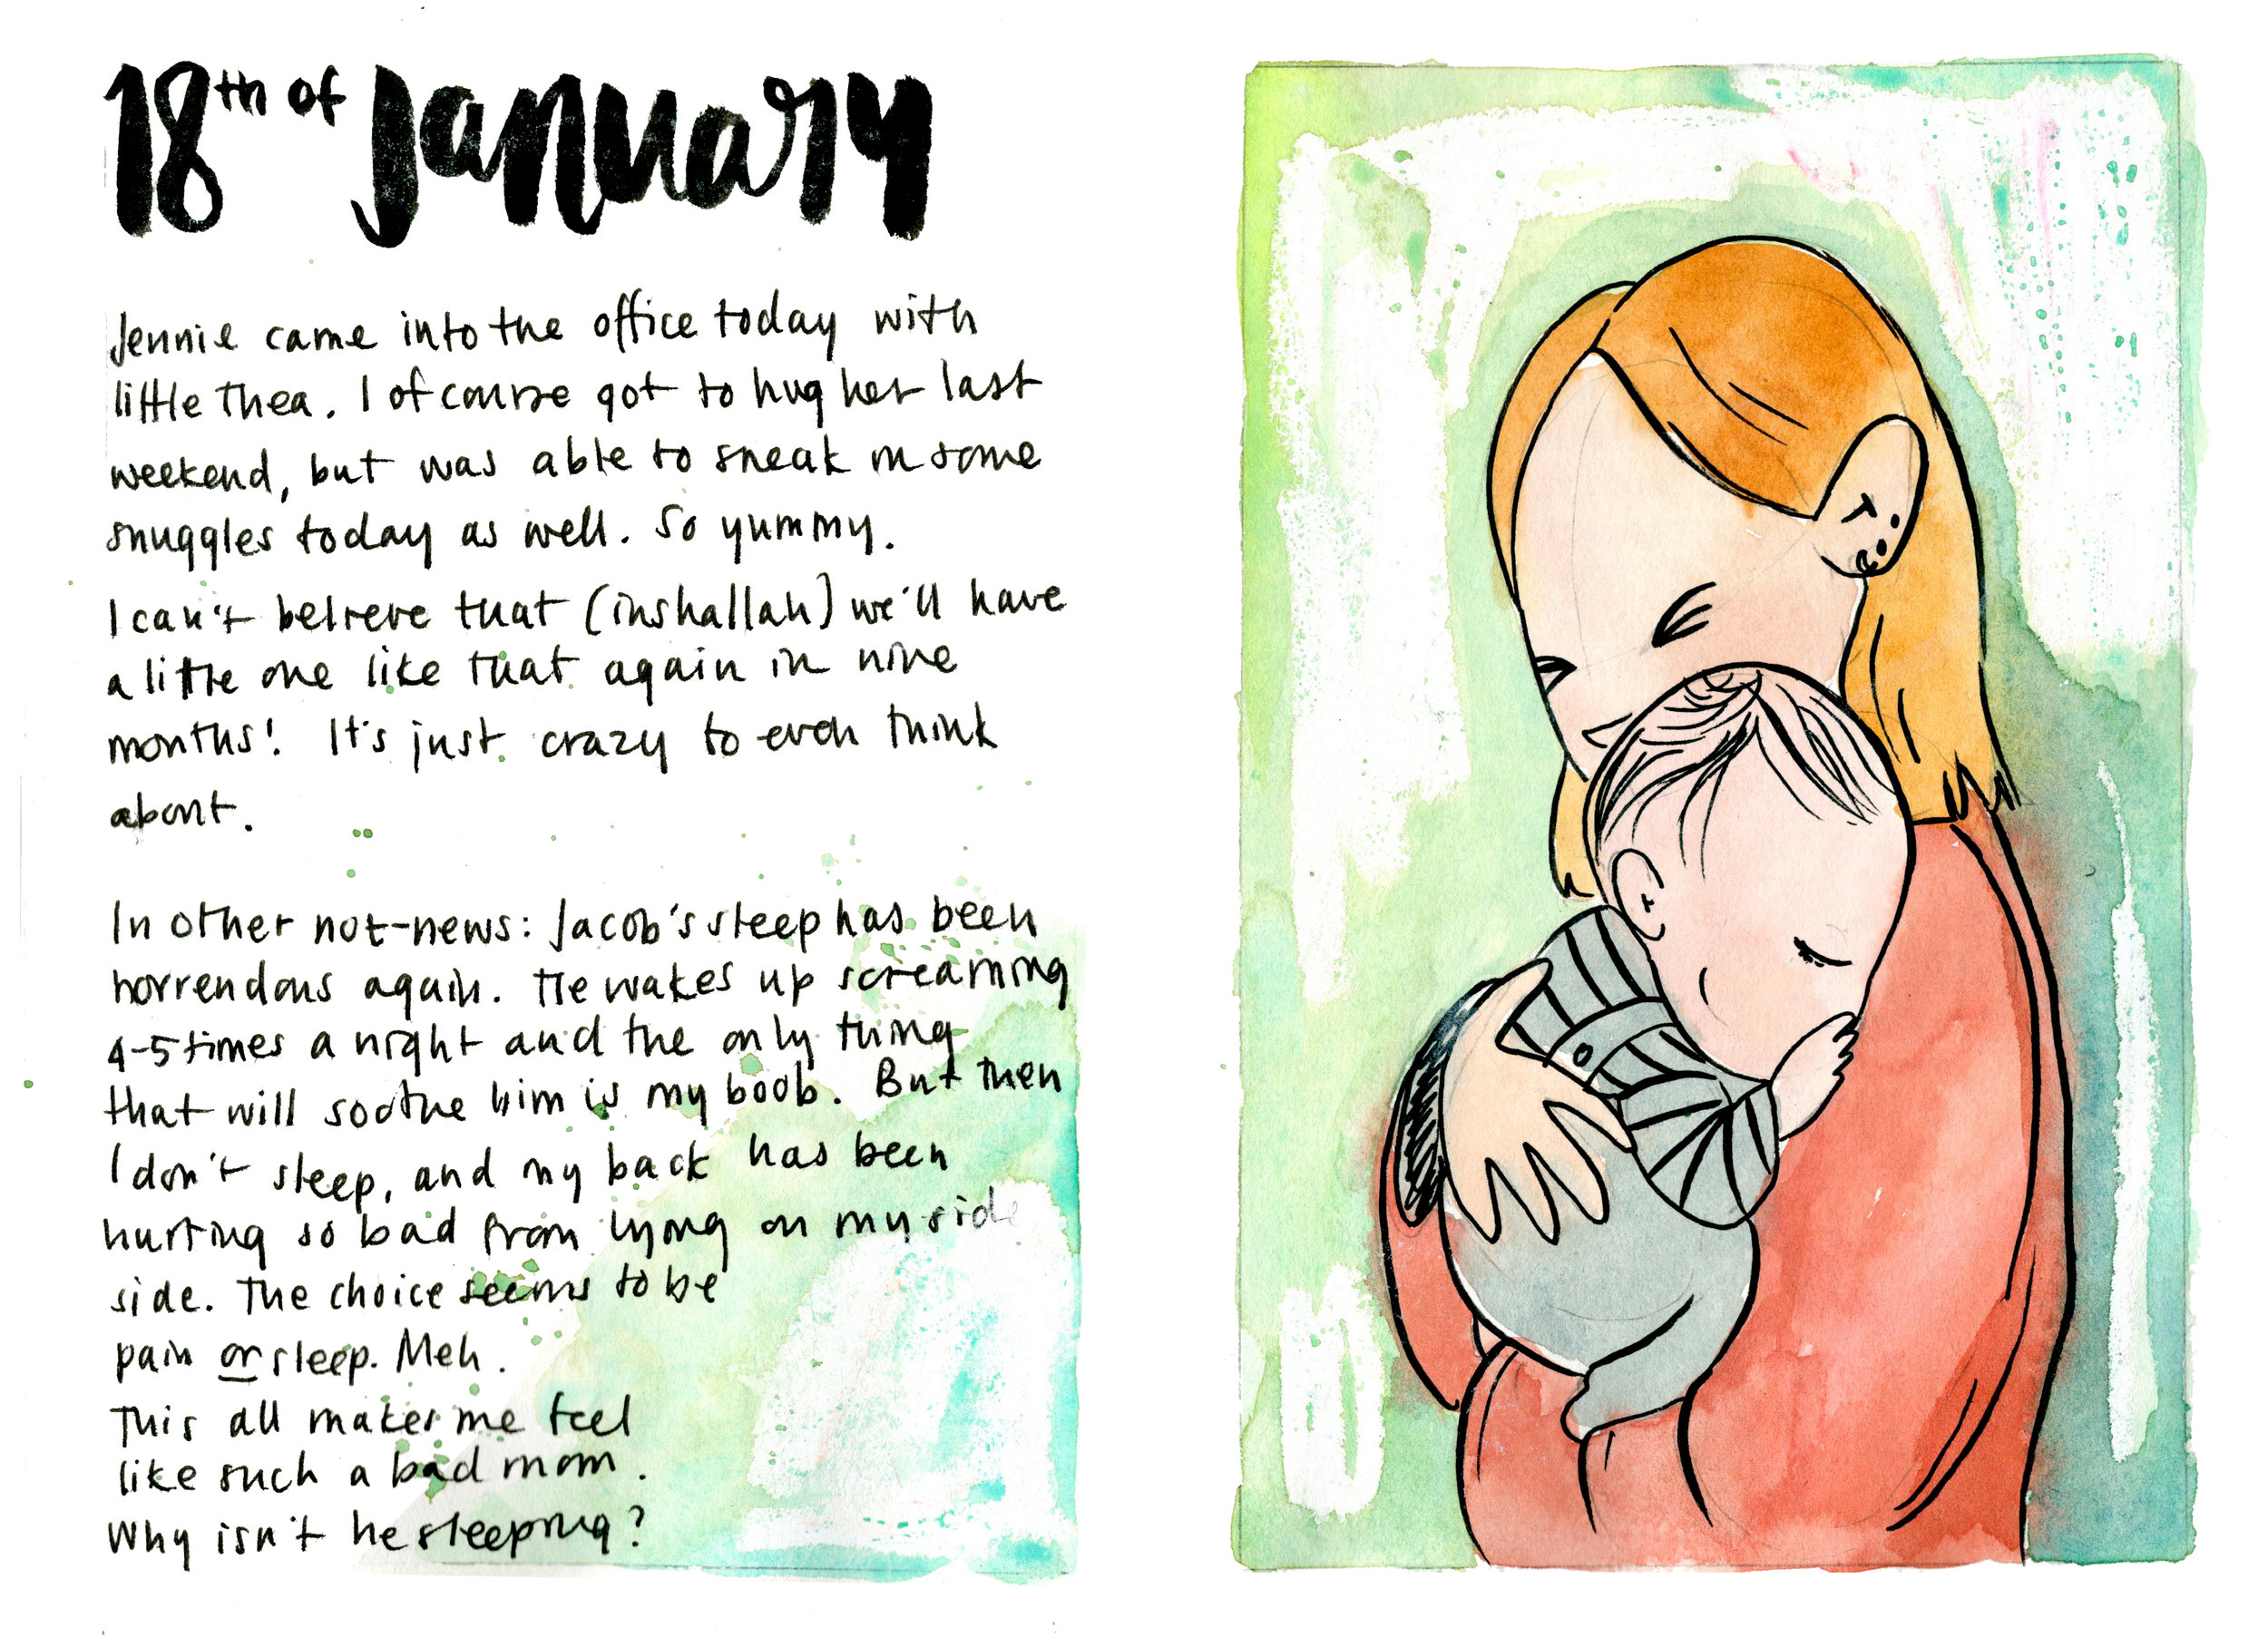 18th of January
Jennie came into the office today with
little Thea. I of course got to hug her last
weekend, but was able to sneak in some
snuggles today as well. So yummy.
I can't believe that (inshallah) we'll have
a little one like that again in nine
months! It's just crazy to even think
about.
In other not-news: Jacob's sleep has been
horrendous again. He wakes up screaming
4-5 times a night and the only thing
that will soothe him is my boob. But then
I don't sleep, and my back has been
hurting so bad from lying on my side
side. The choice seems to be
pain or sleep. Meh.
This all makes me feel
like such a bad mom.
Why isn't he sleeping?